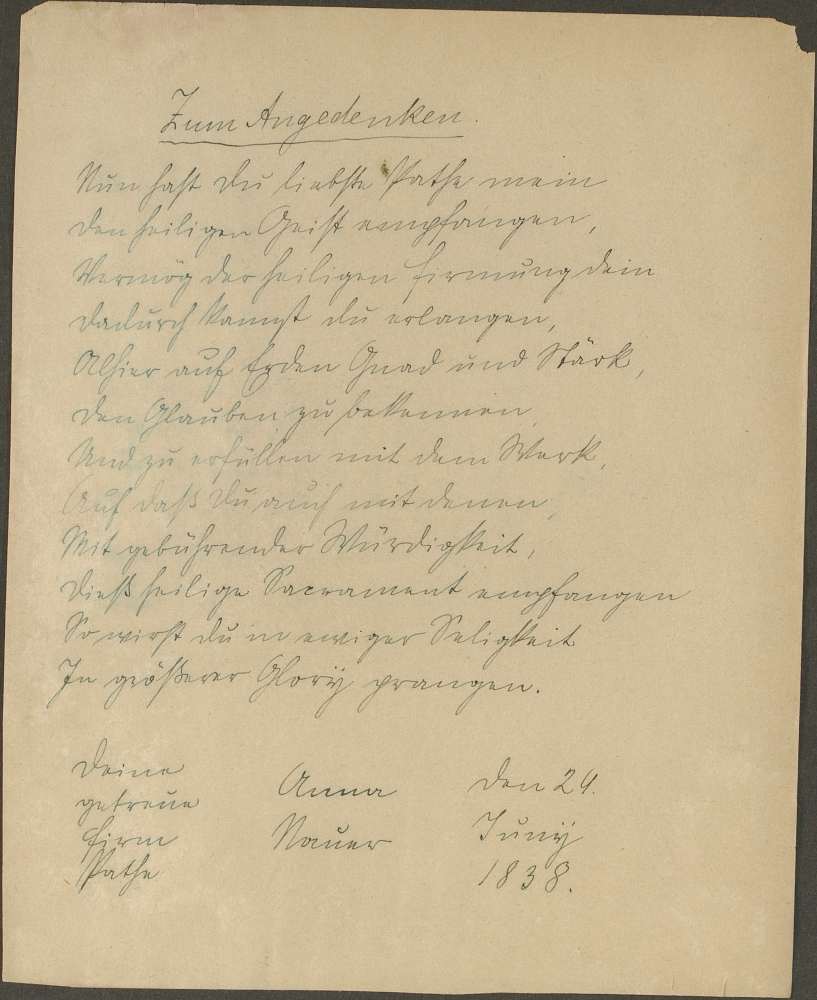 Zum Angedenken.
Nun hast du liebste Pathe mein
den heiligen Geist empfangen,
Vermög der heiligen Firmung dein
dadurch kannst du erlangen,
Alhier auf Erden Gnad und Stärk,
den Glauben zu bekennen,
Und zu erfüllen mit dem Werk,
Auf daß du auch mit denen,
Mit gebührender Würdigkeit,
dieß heilige Sacrament empfangen
So wirst du in ewiger Seligkeit
In größerer Glorÿ prangen.
Deine
getreue
Firm
Pathe
Anna
Nauer
den 24.
Junÿ
1838.